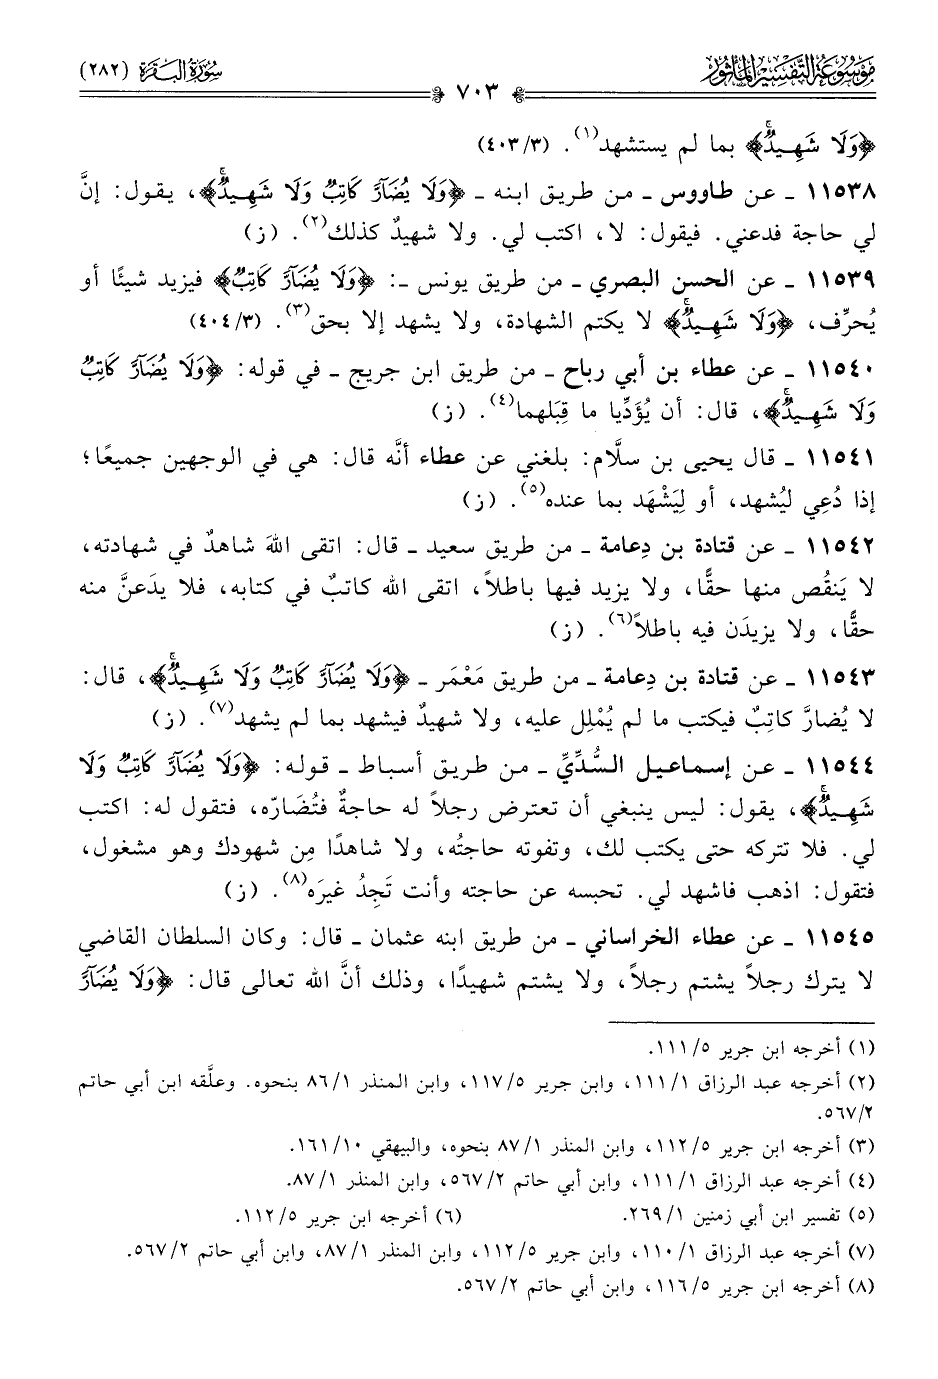 مَوْسُوعَة التَّفْسِير المَأْثُور
سُورَةُ البَقَرَة (٢٨٢)
٧٠٣
﴿وَلَا شَهِيدٌۚ﴾ بما لم يستشهد(١). (٤٠٣/٣)
١١٥٣٨ ـ عن طاووس ـ من طريق ابنه ـ ﴿وَلَا يُضَآرَّ كَاتِبٌ وَلَا شَهِيدٌۚ﴾، يقول: إنَّ
لي حاجة فدعني. فيقول: لا، اكتب لي. ولا شهيدٌ كذلك(٢). (ز)
١١٥٣٩ ـ عن الحسن البصري ـ من طريق يونس ـ: ﴿وَلَا يُضَآرَّ كَاتِبٌ﴾ فيزيد شيئًا أو
يُحرِّف، ﴿وَلَا شَهِيدٌۚ﴾ لا يكتم الشهادة، ولا يشهد إلا بحق(٣). (٤٠٤/٣)
١١٥٤٠ ـ عن عطاء بن أبي رباح ـ من طريق ابن جريج ـ في قوله: ﴿وَلَا يُضَآرَّ كَاتِبٌ
وَلَا شَهِيدٌۚ﴾، قال: أن يُؤَدِّيا ما قِبَلهما(٤). (ز)
١١٥٤١ ـ قال يحيى بن سلَّام: بلغني عن عطاء أنَّه قال: هي في الوجهين جميعًا؛
إذا دُعِي ليُشهد، أو لِيَشْهَد بما عنده(٥). (ز)
١١٥٤٢ ـ عن قتادة بن دِعامة ـ من طريق سعيد ـ قال: اتقى اللهَ شاهدٌ في شهادته،
لا يَنقُص منها حقًّا، ولا يزيد فيها باطلاً، اتقى الله كاتبٌ في كتابه، فلا يدَعنَّ منه
حقًّا، ولا يزيدَن فيه باطلاً(٦). (ز)
١١٥٤٣ ـ عن قتادة بن دِعامة ـ من طريق مَعْمَر ـ ﴿وَلَا يُضَآرَّ كَاتِبٌ وَلَا شَهِيدٌۚ﴾، قال:
لا يُضارَّ كاتِبٌ فيكتب ما لم يُمْلِل عليه، ولا شهيدٌ فيشهد بما لم يشهد(٧). (ز)
١١٥٤٤ ـ عن إسماعيل السُّدِّيِّ ـ من طريق أسباط ـ قوله: ﴿وَلَا يُضَآرَّ كَاتِبٌ وَلَا
شَهِيدٌۚ﴾، يقول: ليس ينبغي أن تعترض رجلاً له حاجةٌ فتُضَارّه، فتقول له: اكتب
لي. فلا تتركه حتى يكتب لك، وتفوته حاجتُه، ولا شاهدًا مِن شهودك وهو مشغول،
فتقول: اذهب فاشهد لي. تحبسه عن حاجته وأنت تَجِدُ غيرَه(٨). (ز)
١١٥٤٥ ـ عن عطاء الخراساني ـ من طريق ابنه عثمان ـ قال: وكان السلطان القاضي
لا يترك رجلاً يشتم رجلاً، ولا يشتم شهيدًا، وذلك أنَّ الله تعالى قال: ﴿وَلَا يُضَآرَّ
(١) أخرجه ابن جرير ٥/ ١١١.
(٢) أخرجه عبد الرزاق ١/ ١١١، وابن جرير ٥/ ١١٧، وابن المنذر ١/ ٨٦ بنحوه. وعلَّقه ابن أبي حاتم
٢/ ٥٦٧.
(٣) أخرجه ابن جرير ٥/ ١١٢، وابن المنذر ١/ ٨٧ بنحوه، والبيهقي ١٠/ ١٦١.
(٤) أخرجه عبد الرزاق ١/ ١١١، وابن أبي حاتم ٢/ ٥٦٧، وابن المنذر ١/ ٨٧.
(٥) تفسير ابن أبي زمنين ١/ ٢٦٩. (٦) أخرجه ابن جرير ٥/ ١١٢.
(٧) أخرجه عبد الرزاق ١/ ١١٠، وابن جرير ٥/ ١١٢، وابن المنذر ١/ ٨٧، وابن أبي حاتم ٢/ ٥٦٧.
(٨) أخرجه ابن جرير ٥/ ١١٦، وابن أبي حاتم ٢/ ٥٦٧.